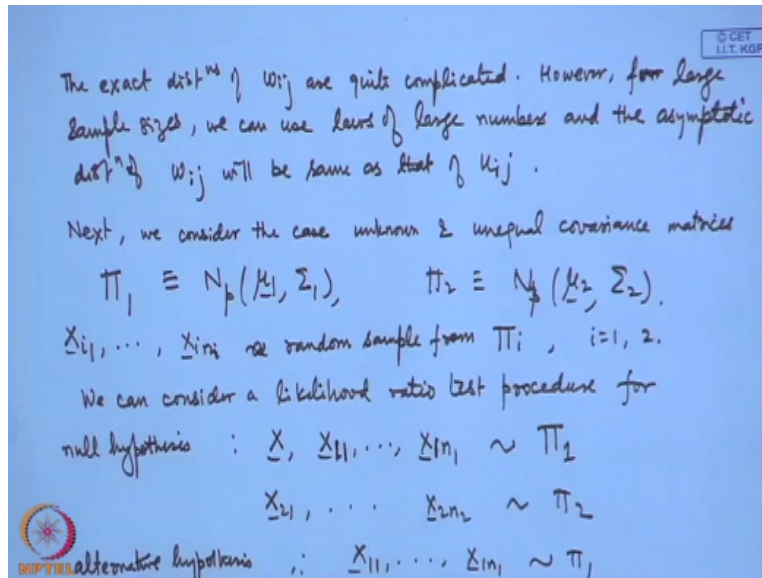 © CET
I.I.T. KGP
The exact distⁿˢ of wij are quite complicated. However, for large
sample sizes, we can use laws of large numbers and the asymptotic
distⁿ of wij will be same as that of uij.
Next, we consider the case unknown & unequal covariance matrices
Π₁ ≡ Nₚ(μ₁, Σ₁), Π₂ ≡ Nₚ(μ₂, Σ₂).
X̲i1, ..., X̲ini random sample from Πi, i=1, 2.
We can consider a likelihood ratio test procedure for
null hypothesis : X̲, X̲11, ..., X̲1n₁ ~ Π₁
X̲21, .... X̲2n₂ ~ Π₂
alternative hypothesis : X̲11, ..., X̲1n₁ ~ Π₁
NPTEL